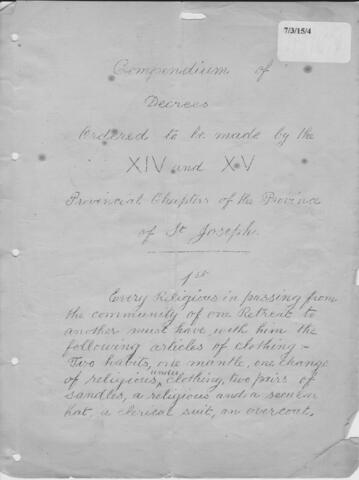 7/3/15/4
Compendium of
Decrees
Ordered to be made by the
XIV and XV
Provincial Chapters of the Province
of St Joseph.
1st
Every Religious in passing from
the community of one Retreat to
another must have with him the
following articles of clothing –
Two habits, one mantle, one change
of religious under clothing, two pairs of
sandles, a religious and a secular
hat, a clerical suit, an overcoat.